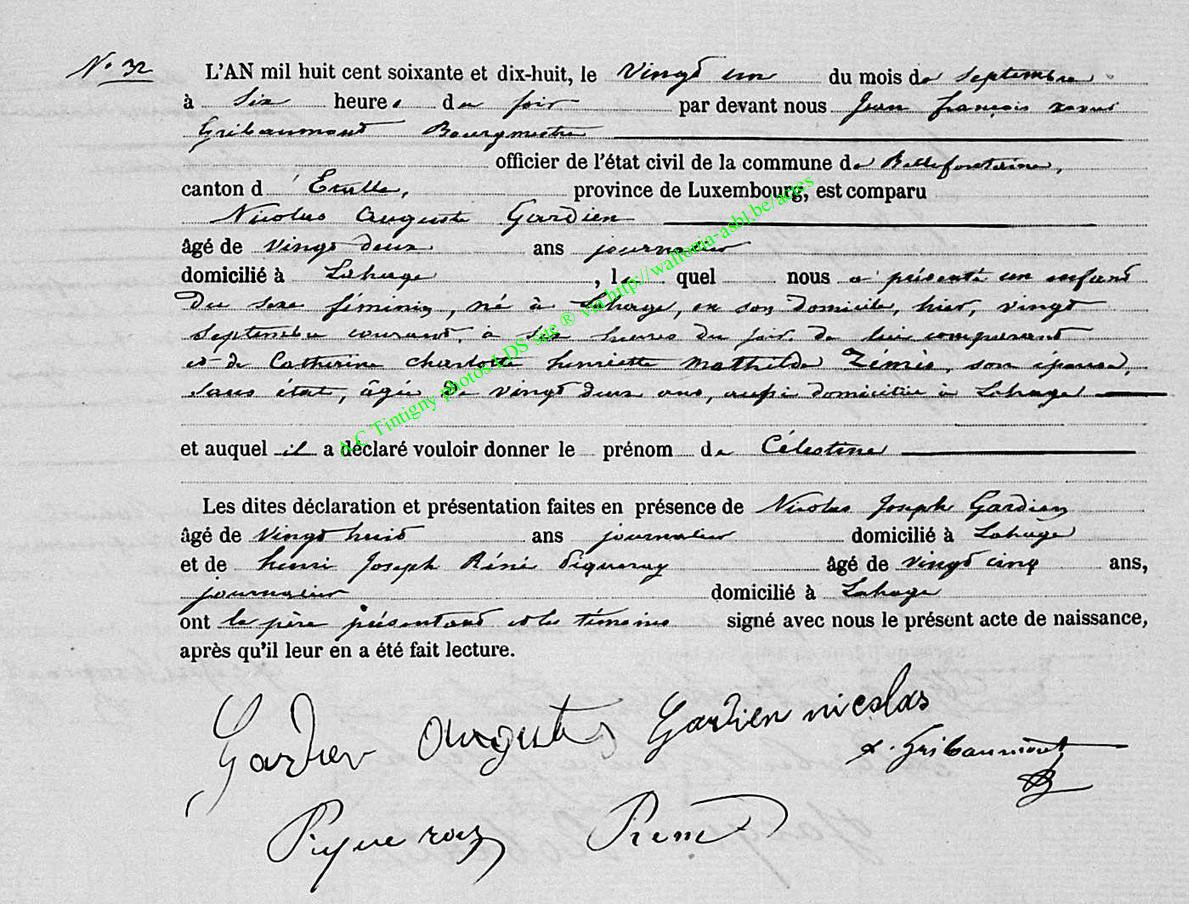 N° 32
L'AN mil huit cent soixante et dix-huit, le vingt un du mois de septembre
à six heures du soir par devant nous Jean françois xavier
Gribaumont Bourgmestre
officier de l'état civil de la commune de Bellefontaine,
canton d'Etalle, province de Luxembourg, est comparu
Nicolas auguste Gardien
âgé de vingt deux ans journalier
domicilié à Lahage, le quel nous a présenté un enfant
du sexe féminin, né à Lahage, en son domicile, hier, vingt
septembre courant, à six heures du soir, de lui comparant
et de Catherine charlotte henriette mathilde Zimis, son épouse,
sans état, âgée de vingt deux ans, aussi domiciliée à Lahage
et auquel il a déclaré vouloir donner le prénom de Célestine
Les dites déclaration et présentation faites en présence de Nicolas Joseph Gardien
âgé de vingt huit ans journalier domicilié à Lahage
et de henri Joseph Réné Piqueray âgé de vingt cinq ans,
journalier domicilié à Lahage
ont le père présentant et les témoins signé avec nous le présent acte de naissance,
après qu'il leur en a été fait lecture.
Gardien auguste Gardien nicolas
x. Gribaumont
Piqueray René
A.C Tintigny photos LDS site ® via http://wallonia-asbl.be/actes